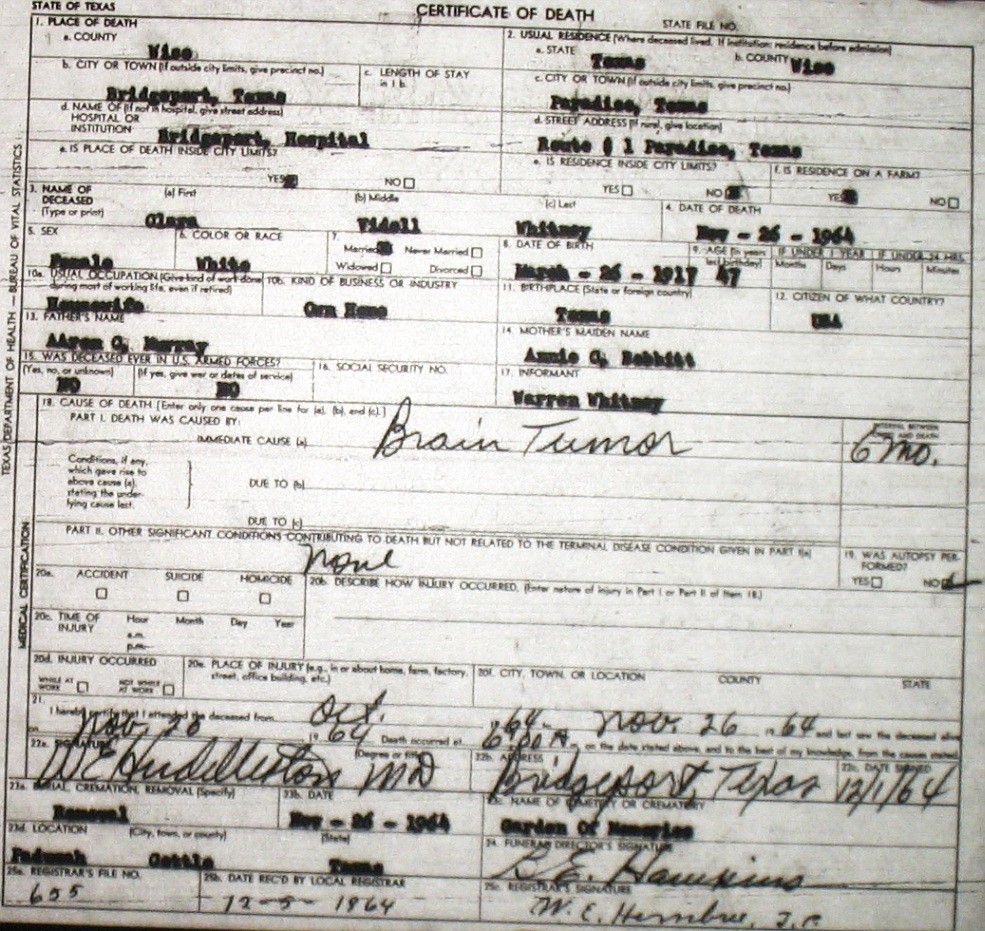 STATE OF TEXAS
CERTIFICATE OF DEATH
STATE FILE NO.
1. PLACE OF DEATH
a. COUNTY
Wise
2. USUAL RESIDENCE (Where deceased lived. If institution: residence before admission)
a. STATE
Texas
b. COUNTY
Wise
b. CITY OR TOWN (If outside city limits, give precinct no.)
Bridgeport, Texas
c. LENGTH OF STAY in 1 b.
c. CITY OR TOWN (If outside city limits, give precinct no.)
Paradise, Texas
d. NAME OF (If not in hospital, give street address)
HOSPITAL OR
INSTITUTION
Bridgeport, Hospital
d. STREET ADDRESS (If rural, give location)
Route # 1 Paradise, Texas
e. IS PLACE OF DEATH INSIDE CITY LIMITS?
YES NO
e. IS RESIDENCE INSIDE CITY LIMITS?
YES NO
f. IS RESIDENCE ON A FARM?
YES NO
3. NAME OF DECEASED
(Type or print)
(a) First
Clara
(b) Middle
Videll
(c) Last
Whitney
4. DATE OF DEATH
Nov - 26 - 1964
5. SEX
Female
6. COLOR OR RACE
White
7.
Married Never Married
Widowed Divorced
8. DATE OF BIRTH
March - 26 - 1917
9. AGE (In years last birthday)
47
IF UNDER 1 YEAR
Months Days
IF UNDER 24 HRS.
Hours Minutes
10a. USUAL OCCUPATION (Give kind of work done
during most of working life, even if retired)
Housewife
10b. KIND OF BUSINESS OR INDUSTRY
Own Home
11. BIRTHPLACE (State or foreign country)
Texas
12. CITIZEN OF WHAT COUNTRY?
USA
13. FATHER'S NAME
Aaron C. Murray
14. MOTHER'S MAIDEN NAME
Annie C. Bobbitt
15. WAS DECEASED EVER IN U.S. ARMED FORCES?
(Yes, no, or unknown)
NO
(If yes, give war or dates of service)
NO
16. SOCIAL SECURITY NO.
17. INFORMANT
Warren Whitney
18. CAUSE OF DEATH [Enter only one cause per line for (a), (b), and (c).]
PART I. DEATH WAS CAUSED BY:
IMMEDIATE CAUSE (a)
Brain Tumor
INTERVAL BETWEEN
AND DEATH
6 mo.
Conditions, if any,
which gave rise to
above cause (a),
stating the under-
lying cause last.
DUE TO (b)
DUE TO (c)
PART II. OTHER SIGNIFICANT CONDITIONS CONTRIBUTING TO DEATH BUT NOT RELATED TO THE TERMINAL DISEASE CONDITION GIVEN IN PART I(a)
None
19. WAS AUTOPSY PER-
FORMED?
YES NO
20a. ACCIDENT SUICIDE HOMICIDE
20b. DESCRIBE HOW INJURY OCCURRED. (Enter nature of injury in Part I or Part II of Item 18.)
20c. TIME OF INJURY
Hour Month Day Year
a.m.
p.m.
20d. INJURY OCCURRED
WHILE AT WORK NOT WHILE AT WORK
20e. PLACE OF INJURY (e.g., in or about home, farm, factory,
street, office building, etc.)
20f. CITY, TOWN, OR LOCATION COUNTY STATE
21.
I hereby certify that I attended the deceased from Oct. 64 Nov. 26 1964 and last saw the deceased alive
on Nov. 26 1964 Death occurred at 6:00 A m., on the date stated above, and to the best of my knowledge, from the causes stated.
22a. SIGNATURE
(Degree or title)
W E Huddleston MD
22b. ADDRESS
Bridgeport, Texas
22c. DATE SIGNED
12/1/64
23a. BURIAL, CREMATION, REMOVAL (Specify)
Removal
23b. DATE
Nov - 26 - 1964
23c. NAME OF CEMETERY OR CREMATORY
Garden Of Memories
23d. LOCATION (City, town, or county) (State)
Paducah Cottle Texas
24. FUNERAL DIRECTOR'S SIGNATURE
E. Hawkins
25a. REGISTRAR'S FILE NO.
655
25b. DATE REC'D BY LOCAL REGISTRAR
12-5-1964
25c. REGISTRAR'S SIGNATURE
W. E. Hembree, J.P.
TEXAS DEPARTMENT OF HEALTH — BUREAU OF VITAL STATISTICS
MEDICAL CERTIFICATION